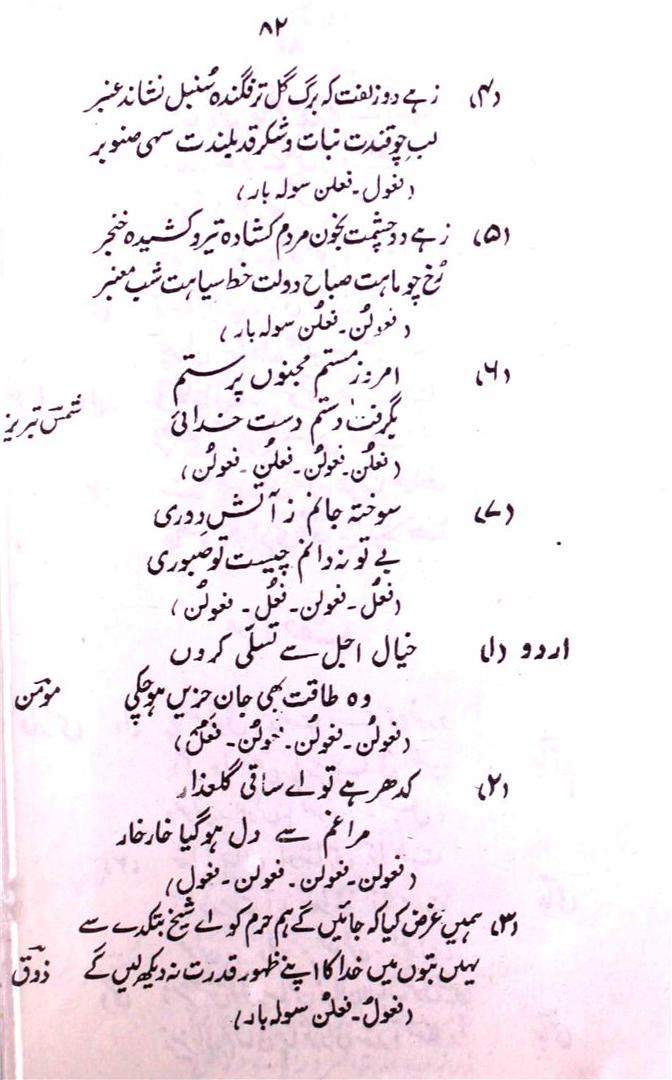 ۸۲
(۴) زہے دو زلفت کہ برگ گل تر فگندہ سُنبل نشاند عنبر
لبِ چو قندت نبات و شکر قد بلندت سہی صنوبر
(فعول۔ فعلن سولہ بار)
(۵) زہے دو چشمت بخون مردم کشادہ تیر و کشیدہ خنجر
رُخ چو ماہت صباح دولت خط سیاہت شب معنبر
(فعولن۔ فعلُن سولہ بار)
(۶) امروز مستم مجنوں پرستم
بگرفت دستم دست خدائی شمس تبریز
(فعلُن۔ فعولُن۔ فعلُن۔ فعولُن)
(۷) سوختہ جانم ز آتش دوری
بے تو نہ دانم چیست تو صبوری
(فعلُ۔ فعولن۔ فعلُ۔ فعولُن)
اردو (۱) خیال اجل سے تسلّی کروں
وہ طاقت بھی جانِ حزیں ہو چکی مومن
(فعولُن۔ فعولُن۔ فعولُن۔ فعلُ)
(۲) کدھر ہے تو اے ساقی گلعذار
مرا غم سے دل ہو گیا خار خار
(فعولن۔ فعولن۔ فعولن۔ فعول)
(۳) ہمیں غرض کیا کہ جائیں گے ہم حرم کو اے شیخ بتکدے سے
یہیں بتوں میں خدا کا اپنے ظہور قدرت نہ دیکھ لیں گے ذوق
(فعولُ۔ فعلُن سولہ بار)